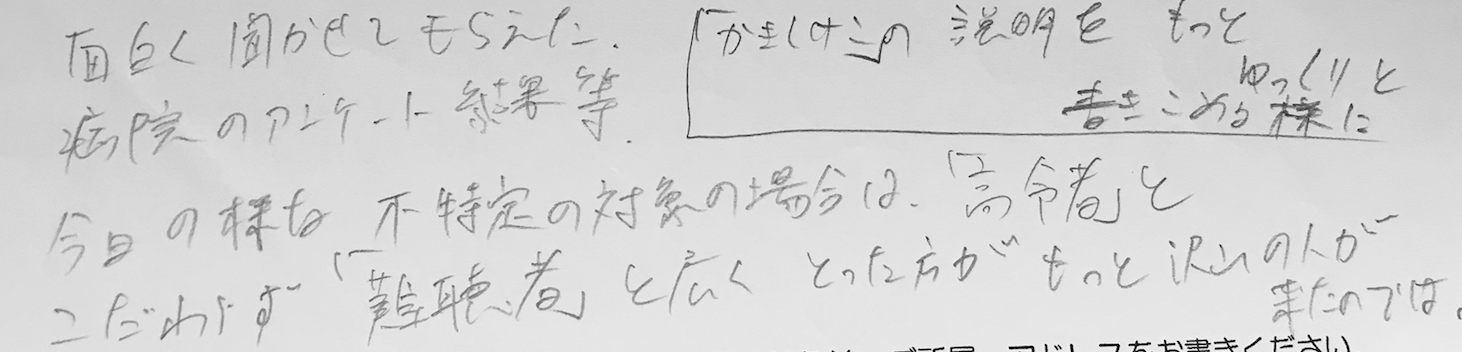 面白く聞かせてもらえた.
病院のアンケート結果等.
「かきくけこ」の説明をもっと
ゆっくりと
書きこめる様に
今日の様な不特定の対象の場合は、「高令者」と
こだわらず「難聴者」と広くとった方がもっと沢山の人が
来たのでは。
アドレスをお書きください